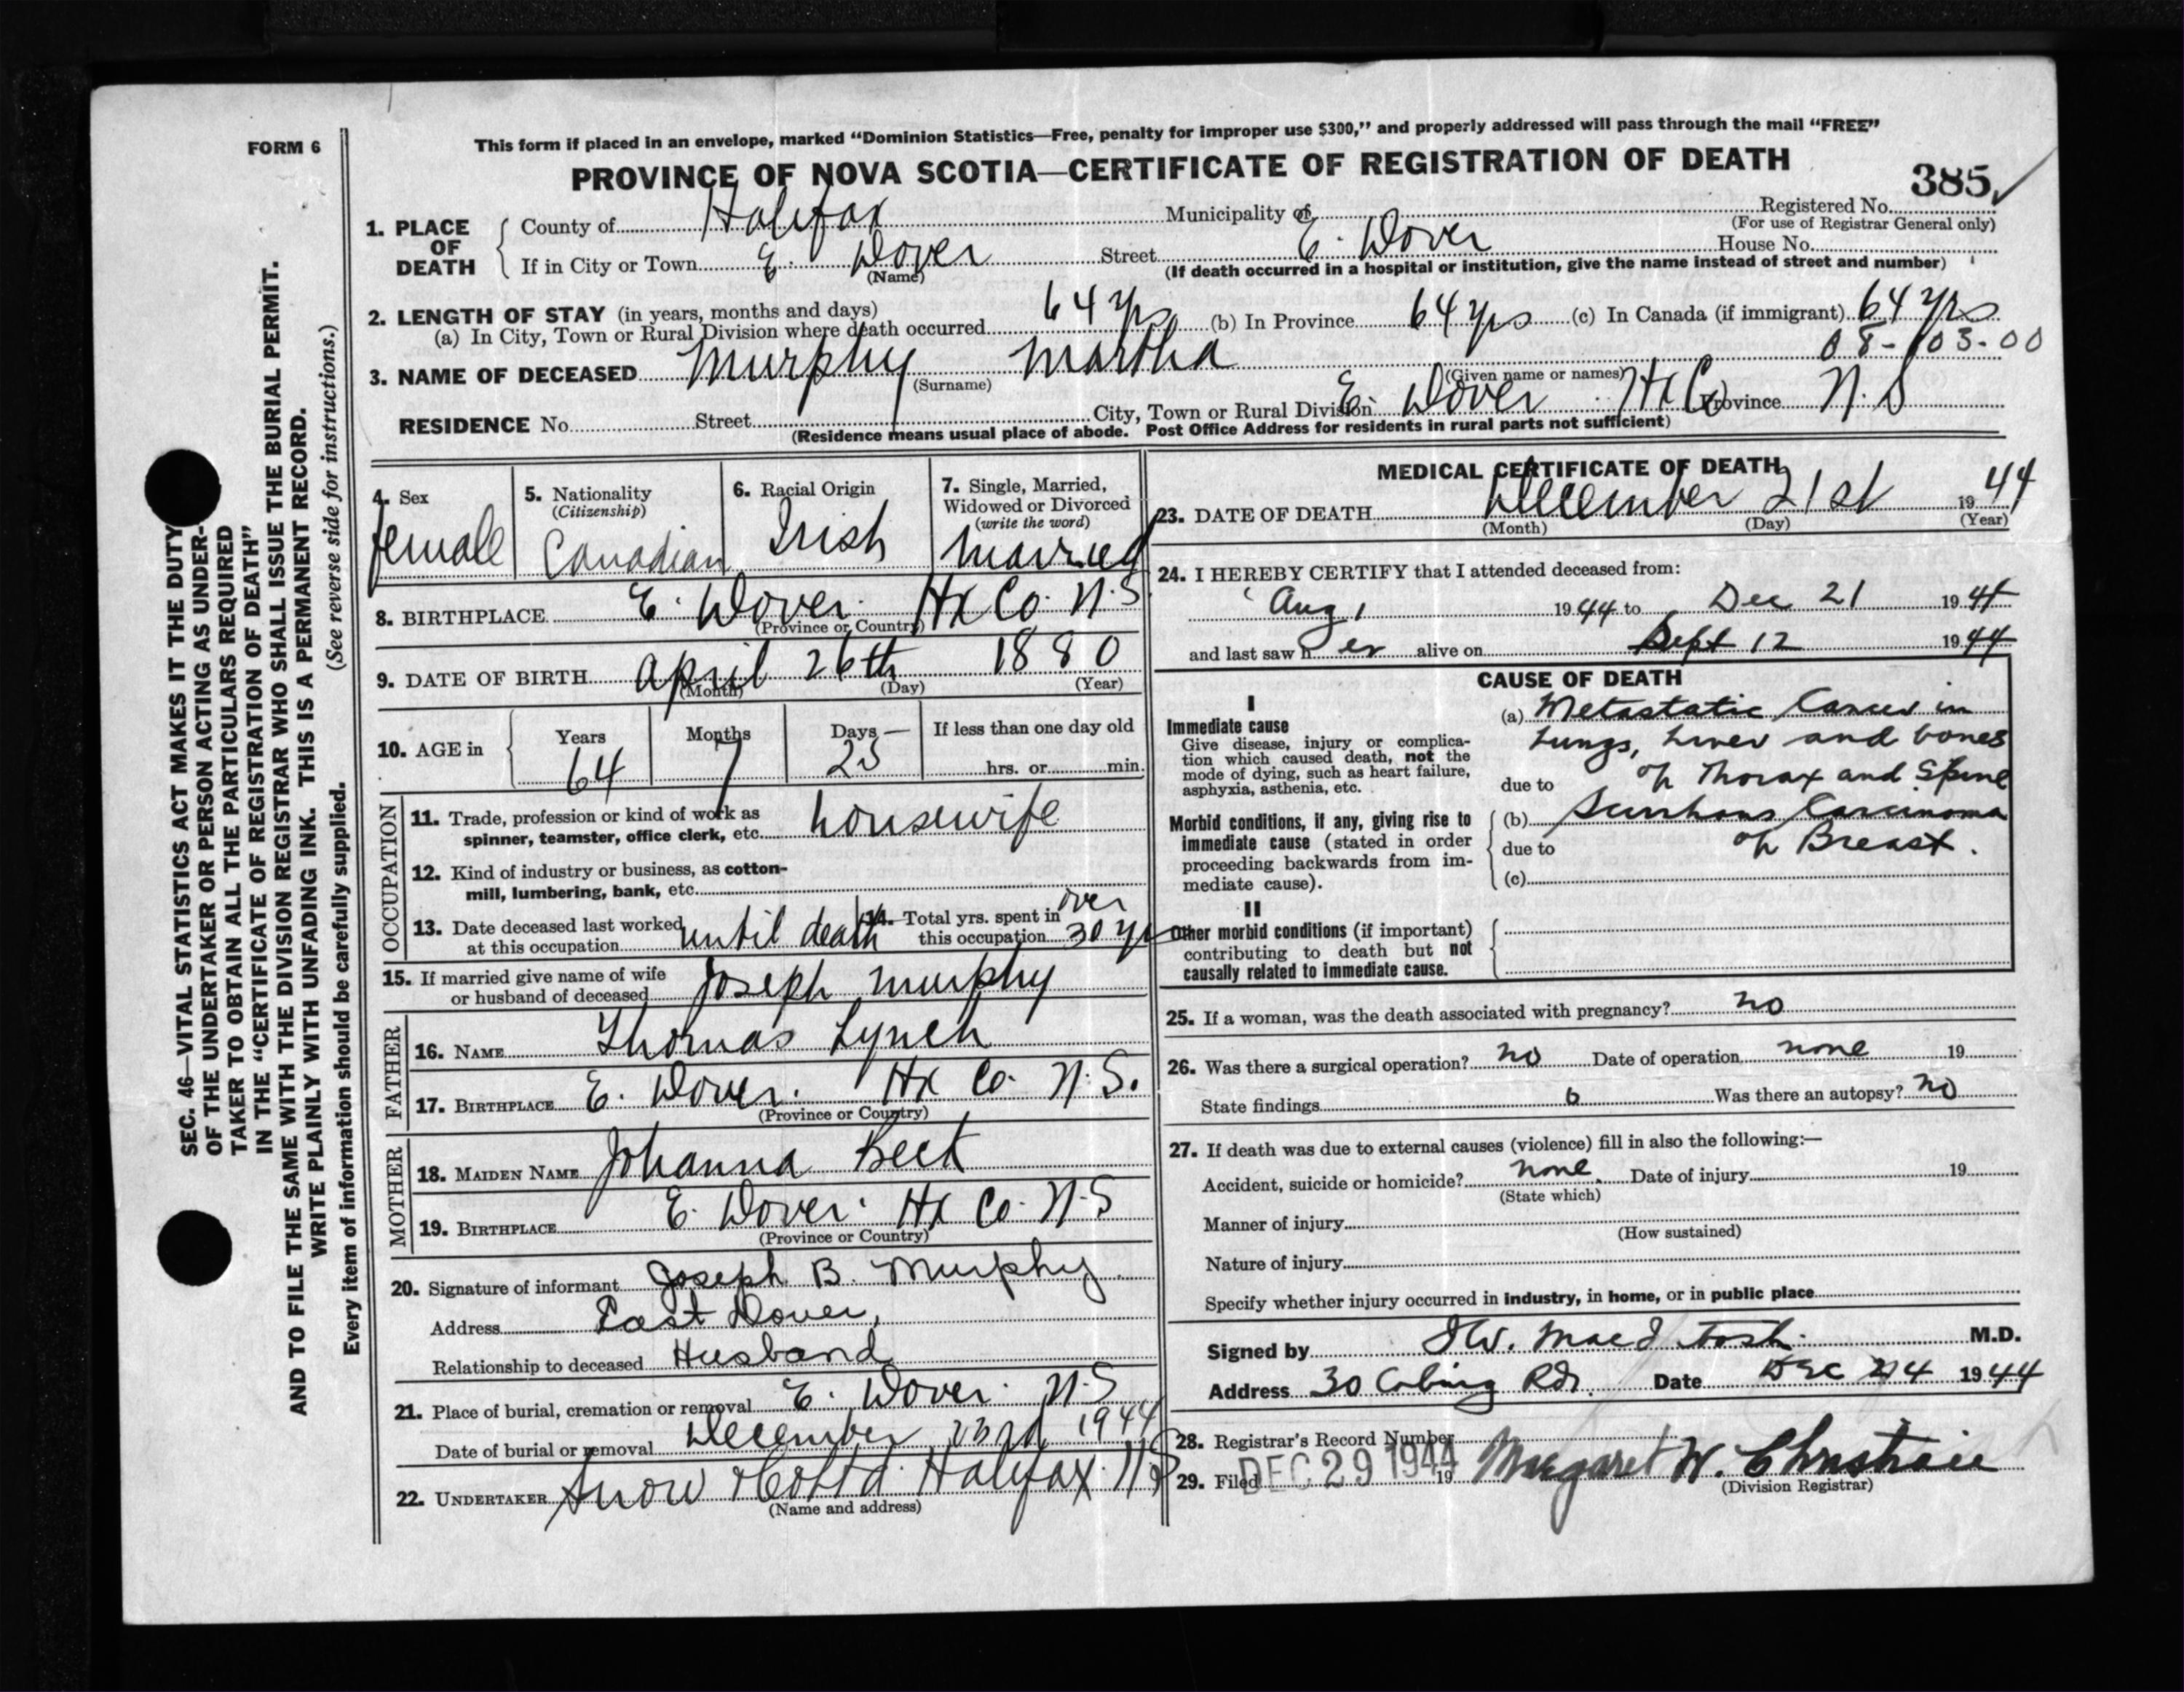 FORM 6
This form if placed in an envelope, marked “Dominion Statistics—Free, penalty for improper use $300,” and properly addressed will pass through the mail “FREE”
PROVINCE OF NOVA SCOTIA—CERTIFICATE OF REGISTRATION OF DEATH
385
1. PLACE OF DEATH
County of Halifax Municipality of Registered No.
(For use of Registrar General only)
If in City or Town E. Dover Street E. Dover House No.
(Name) (If death occurred in a hospital or institution, give the name instead of street and number)
2. LENGTH OF STAY (in years, months and days)
(a) In City, Town or Rural Division where death occurred 64 yrs (b) In Province 64 yrs (c) In Canada (if immigrant) 64 yrs
08-103-00
3. NAME OF DECEASED Murphy Martha
(Surname) (Given name or names)
RESIDENCE No. Street City, Town or Rural Division E. Dover Hx Co Province N.S
(Residence means usual place of abode. Post Office Address for residents in rural parts not sufficient)
4. Sex
female
5. Nationality
(Citizenship)
Canadian
6. Racial Origin
Irish
7. Single, Married,
Widowed or Divorced
(write the word)
Married
8. BIRTHPLACE E. Dover. Hx Co. N.S
(Province or Country)
9. DATE OF BIRTH April 26th 1880
(Month) (Day) (Year)
10. AGE in
Years Months Days If less than one day old
64 7 25 hrs. or min.
OCCUPATION
11. Trade, profession or kind of work as
spinner, teamster, office clerk, etc. housewife
12. Kind of industry or business, as cotton-
mill, lumbering, bank, etc.
13. Date deceased last worked
at this occupation until death
14. Total yrs. spent in over
this occupation 30 yrs
15. If married give name of wife
or husband of deceased Joseph Murphy
FATHER
16. NAME Thomas Lynch
17. BIRTHPLACE E. Dover. Hx Co. N.S.
(Province or Country)
MOTHER
18. MAIDEN NAME Johanna Beck
19. BIRTHPLACE E. Dover. Hx Co. N.S
(Province or Country)
20. Signature of informant Joseph B. Murphy
Address East Dover,
Relationship to deceased Husband
21. Place of burial, cremation or removal E. Dover. N.S
Date of burial or removal December 23rd 1944
22. UNDERTAKER Snow & Co Ltd. Halifax. N.S
(Name and address)
MEDICAL CERTIFICATE OF DEATH
23. DATE OF DEATH December 21st 1944
(Month) (Day) (Year)
24. I HEREBY CERTIFY that I attended deceased from:
Aug 1 1944 to Dec 21 1944
and last saw h er alive on Sept 12 1944
CAUSE OF DEATH
I
Immediate cause
Give disease, injury or complica-
tion which caused death, not the
mode of dying, such as heart failure,
asphyxia, asthenia, etc.
(a) Metastatic Cancer in
Lungs, Liver and bones
due to of Thorax and Spine
Morbid conditions, if any, giving rise to
immediate cause (stated in order
proceeding backwards from im-
mediate cause).
(b) Scirrhous Carcinoma
due to of Breast.
(c)
II
Other morbid conditions (if important)
contributing to death but not
causally related to immediate cause.
25. If a woman, was the death associated with pregnancy? no
26. Was there a surgical operation? no Date of operation none 19
State findings Was there an autopsy? no
27. If death was due to external causes (violence) fill in also the following:—
Accident, suicide or homicide? none. Date of injury 19
(State which)
Manner of injury
(How sustained)
Nature of injury
Specify whether injury occurred in industry, in home, or in public place
Signed by MacIntosh. M.D.
Address 30 Coburg Rd. Date DEC 1944
28. Registrar's Record Number
29. Filed DEC 29 1944 19 Margaret W. Christie
(Division Registrar)
SEC. 46—VITAL STATISTICS ACT MAKES IT THE DUTY
OF THE UNDERTAKER OR PERSON ACTING AS UNDER-
TAKER TO OBTAIN ALL THE PARTICULARS REQUIRED
IN THE “CERTIFICATE OF REGISTRATION OF DEATH”
AND TO FILE THE SAME WITH THE DIVISION REGISTRAR WHO SHALL ISSUE THE BURIAL PERMIT.
WRITE PLAINLY WITH UNFADING INK. THIS IS A PERMANENT RECORD.
Every item of information should be carefully supplied. (See reverse side for instructions.)